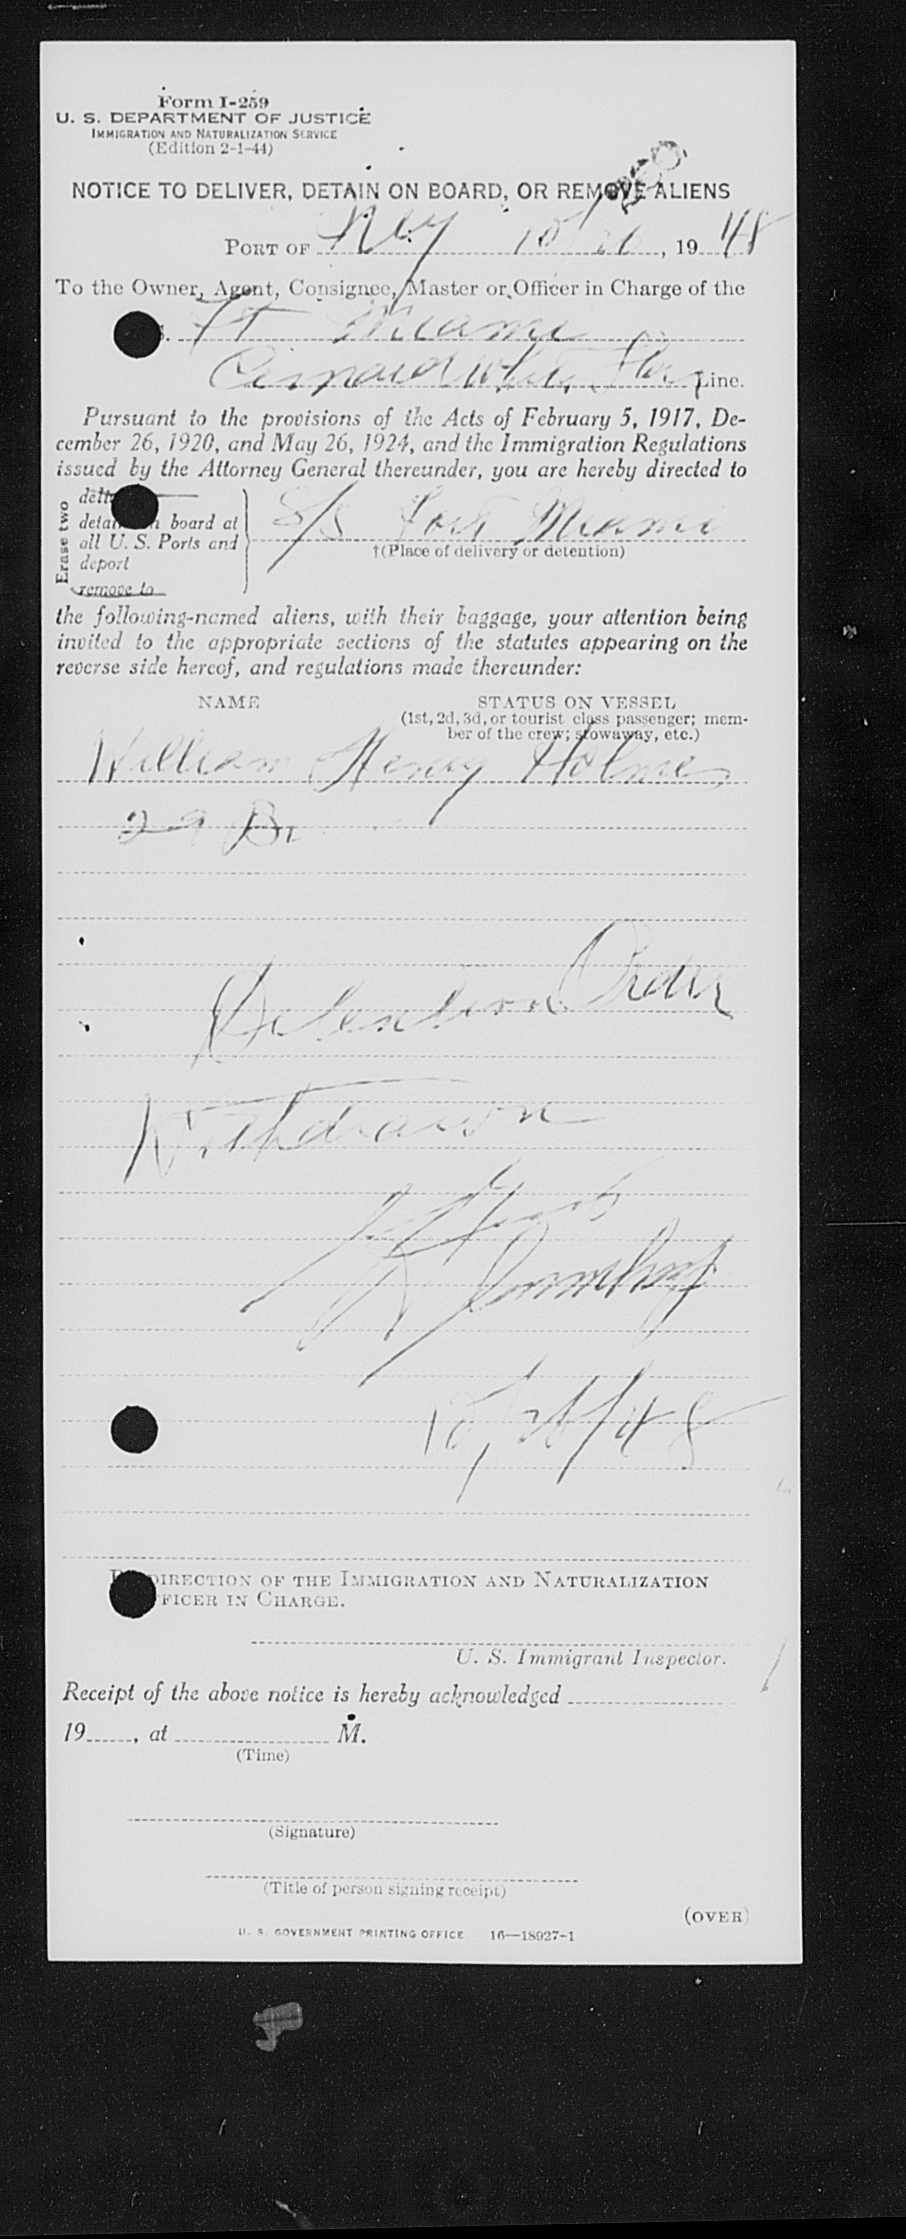 Form I-259
U. S. DEPARTMENT OF JUSTICE
IMMIGRATION AND NATURALIZATION SERVICE
(Edition 2-1-44)
NOTICE TO DELIVER, DETAIN ON BOARD, OR REMOVE ALIENS
PORT OF 10/26, 1948
To the Owner, Agent, Consignee, Master or Officer in Charge of the
Ft Miami
White Star Line.
Pursuant to the provisions of the Acts of February 5, 1917, De-
cember 26, 1920, and May 26, 1924, and the Immigration Regulations
issued by the Attorney General thereunder, you are hereby directed to
Erase two
board at
all U. S. Ports and
deport
remove to
S/S Fort Miami
†(Place of delivery or detention)
the following-named aliens, with their baggage, your attention being
invited to the appropriate sections of the statutes appearing on the
reverse side hereof, and regulations made thereunder:
NAME STATUS ON VESSEL
(1st, 2d, 3d, or tourist class passenger; mem-
ber of the crew; stowaway, etc.)
William Henry Holmes
29 Br
Detention Order
Withdrawn
10/26/48
DIRECTION OF THE IMMIGRATION AND NATURALIZATION
FICER IN CHARGE.
U. S. Immigrant Inspector.
Receipt of the above notice is hereby acknowledged
19, at M.
(Time)
(Signature)
(Title of person signing receipt)
(OVER)
U. S. GOVERNMENT PRINTING OFFICE 16—18027-1